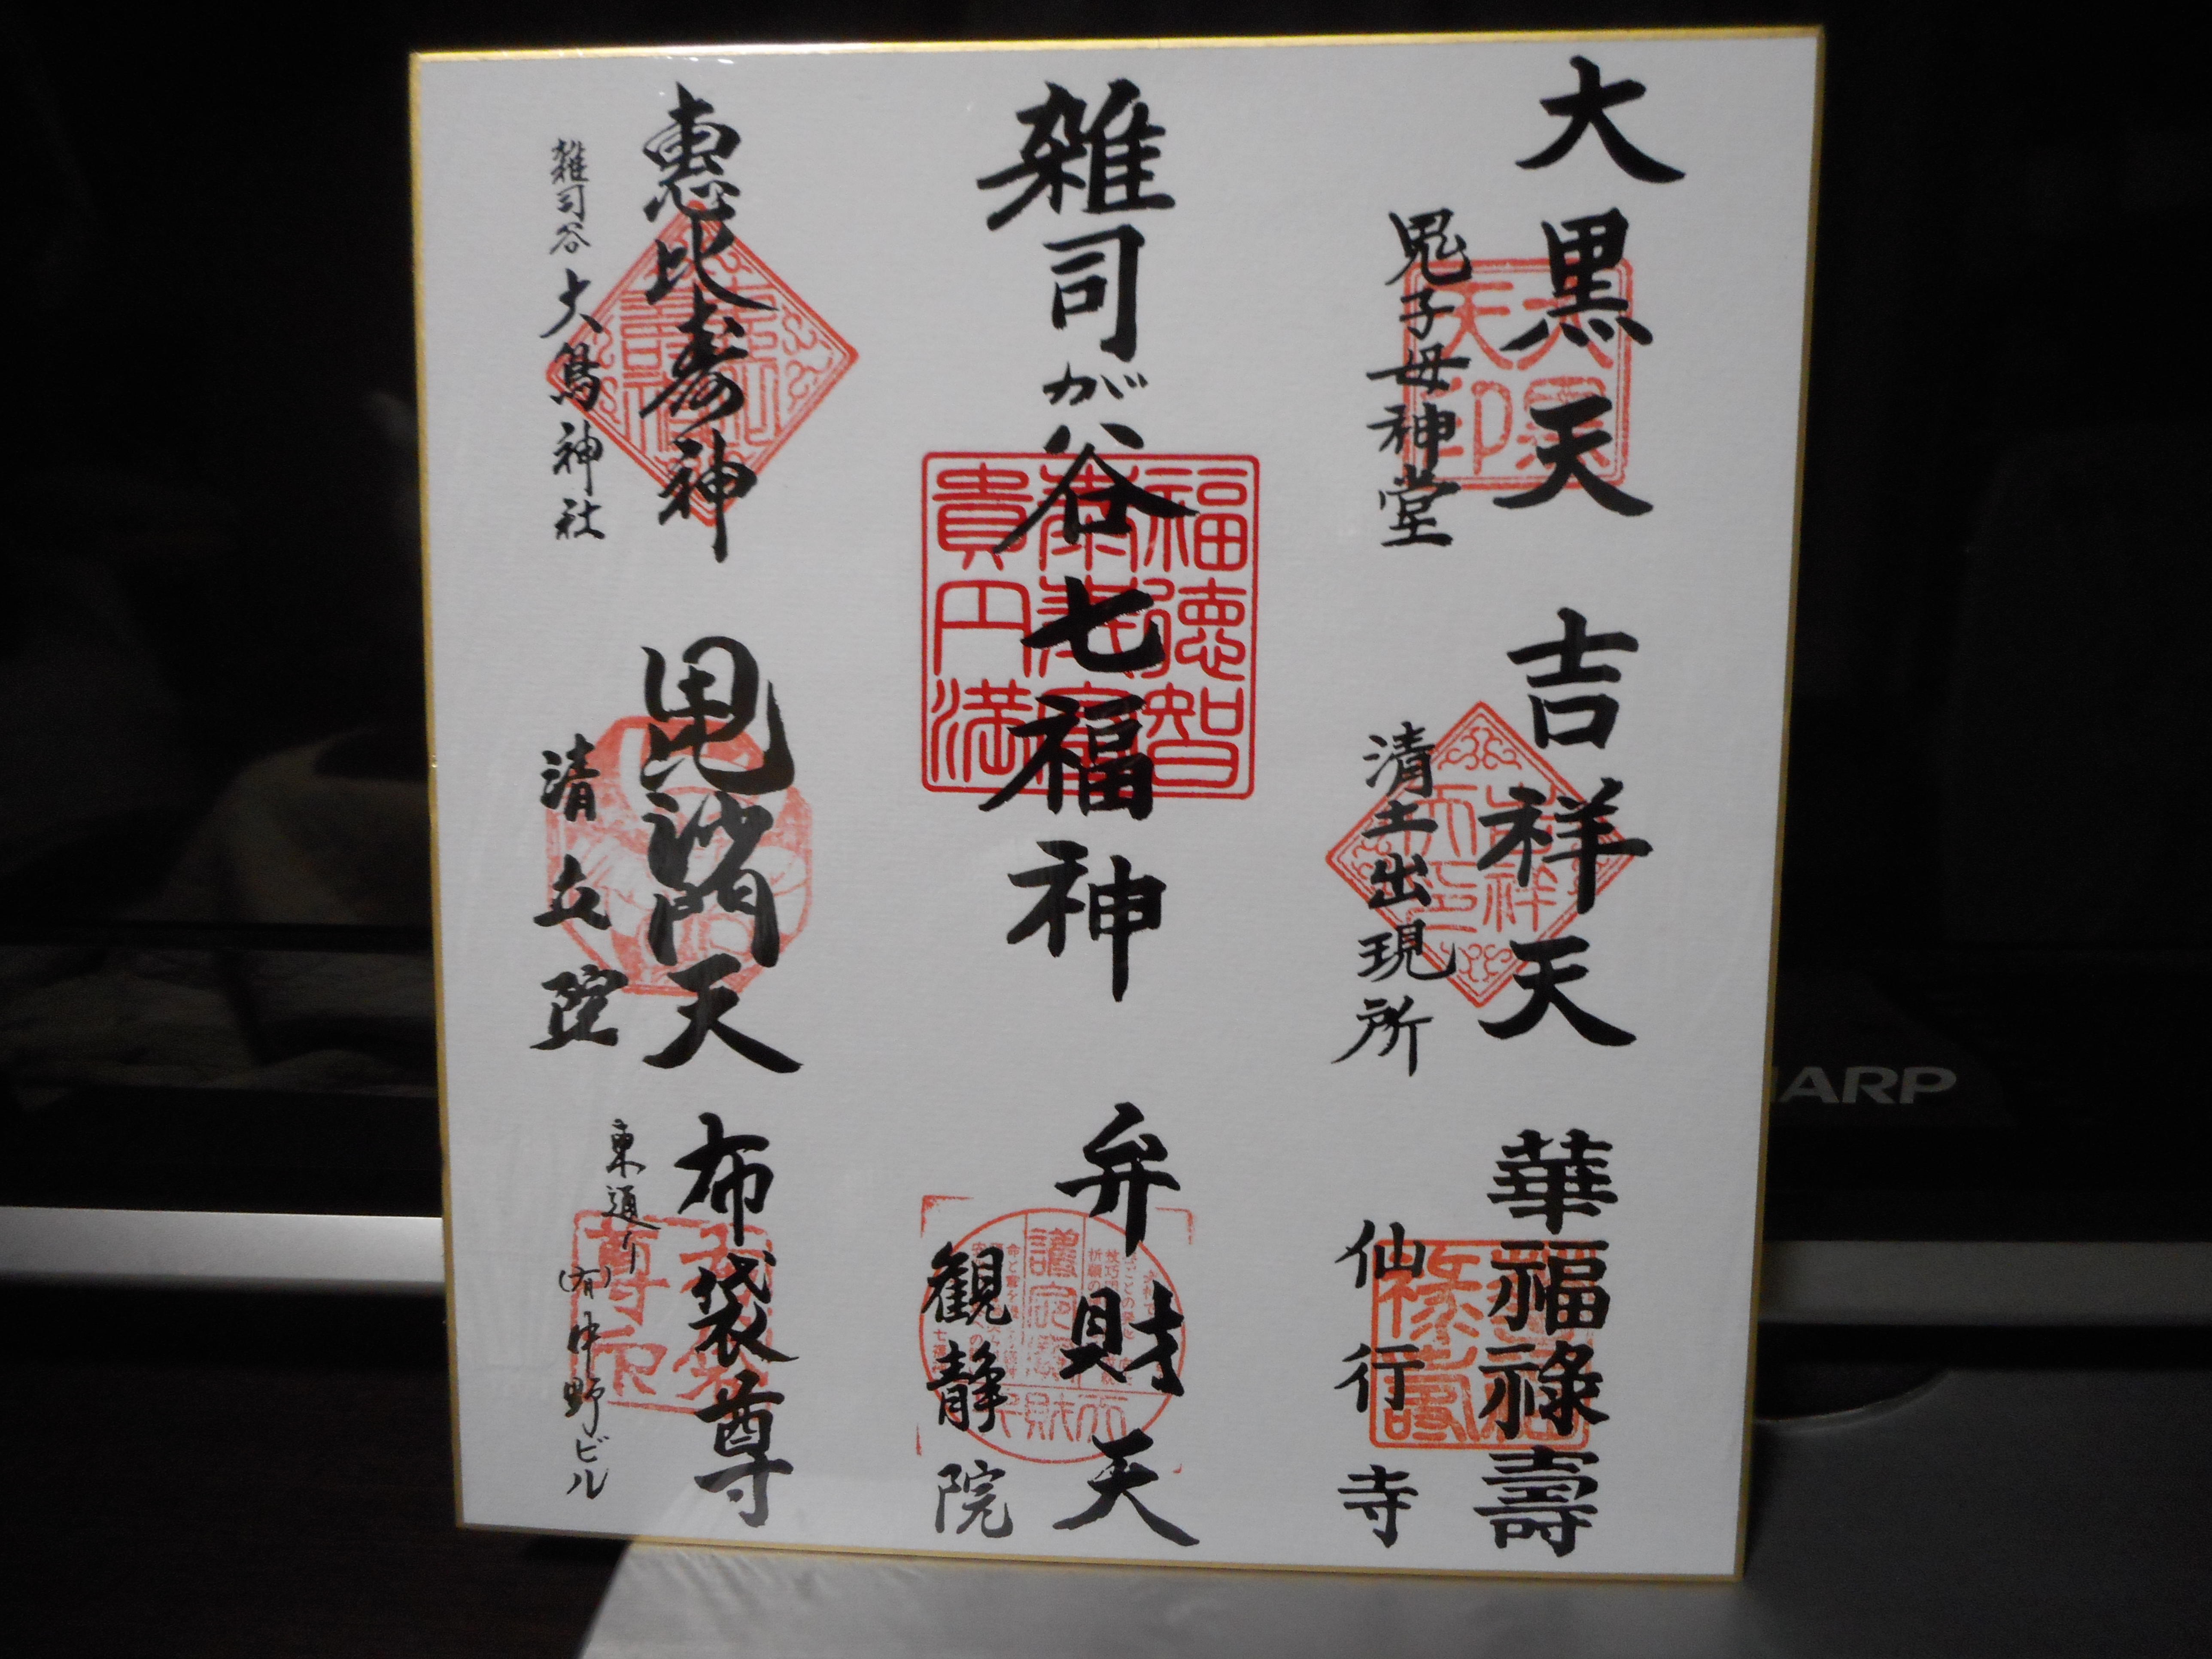 大黒天
鬼子母神堂
吉祥天
清土出現所
華福禄壽
仙行寺
雑司が谷七福神
福徳智
貴円満
弁財天
観静院
恵比寿神
雑司谷大鳥神社
毘沙門天
清立院
布袋尊
東通り(有)中野ビル
ARP